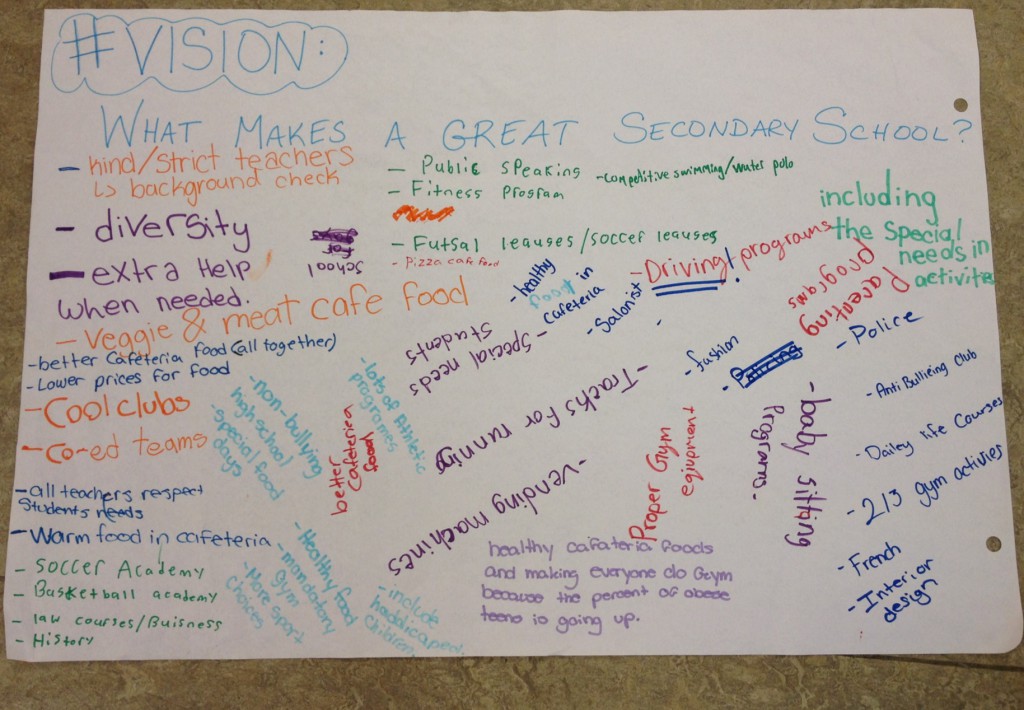 #VISION:
WHAT MAKES A GREAT SECONDARY SCHOOL?
- kind/strict teachers
↳ background check
- diversity
- extra Help
when needed.
for
school
- Veggie & meat cafe food
- better Cafeteria food (all together)
- Lower prices for food
- Cool clubs
- Co-ed teams
- all teachers respect
Students needs
- Warm food in cafeteria
- Soccer Academy
- Basketball academy
- law courses/Buisness
- History
- Public Speaking
- Fitness Program
- Competitive swimming/water polo
- Futsal leauses/soccer leauses
- Pizza cafe food
- healthy
food in
cafeteria
- Salonist
- Driving! programs
including
the Special
needs in
activites
Parenting
programs
- Special needs
Students
- non-bullying
high school
- special food
days
- lots of Athletic
programes
better
Cafeteria
food
- Tracks for running
- Vending machines
- fashion
- Police
- Anti Bullieing Club
- Dailey life Courses
- 2/3 gym activies
- French
- Interior
design
- baby sitting
Programs.
Proper Gym
eqiupment
- Healthy food
- mandatory
gym
- More sport
choices
- include
haddicaped
Children
healthy cafateria foods
and making everyone do Gym
because the percent of obese
teens is going up.